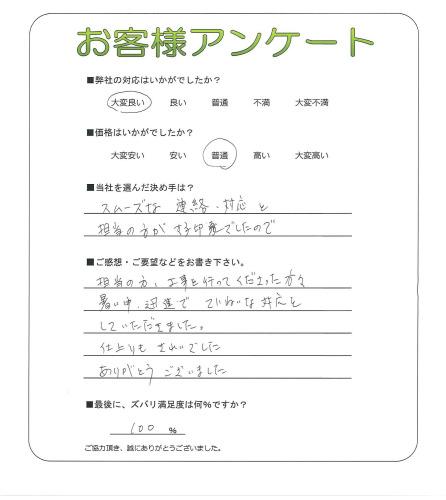 お客様アンケート
■弊社の対応はいかがでしたか？
大変良い 良い 普通 不満 大変不満
■価格はいかがでしたか？
大変安い 安い 普通 高い 大変高い
■当社を選んだ決め手は？
スムーズな 連絡・対応と
担当の方が 好印象でしたので
■ご感想・ご要望などをお書き下さい。
担当の方、工事を行ってくださった方々
暑い中、迅速で ていねいな対応を
していただきました。
仕上りも きれいでした
ありがとう ございました
■最後に、ズバリ満足度は何%ですか？
100 %
ご協力頂き、誠にありがとうございました。